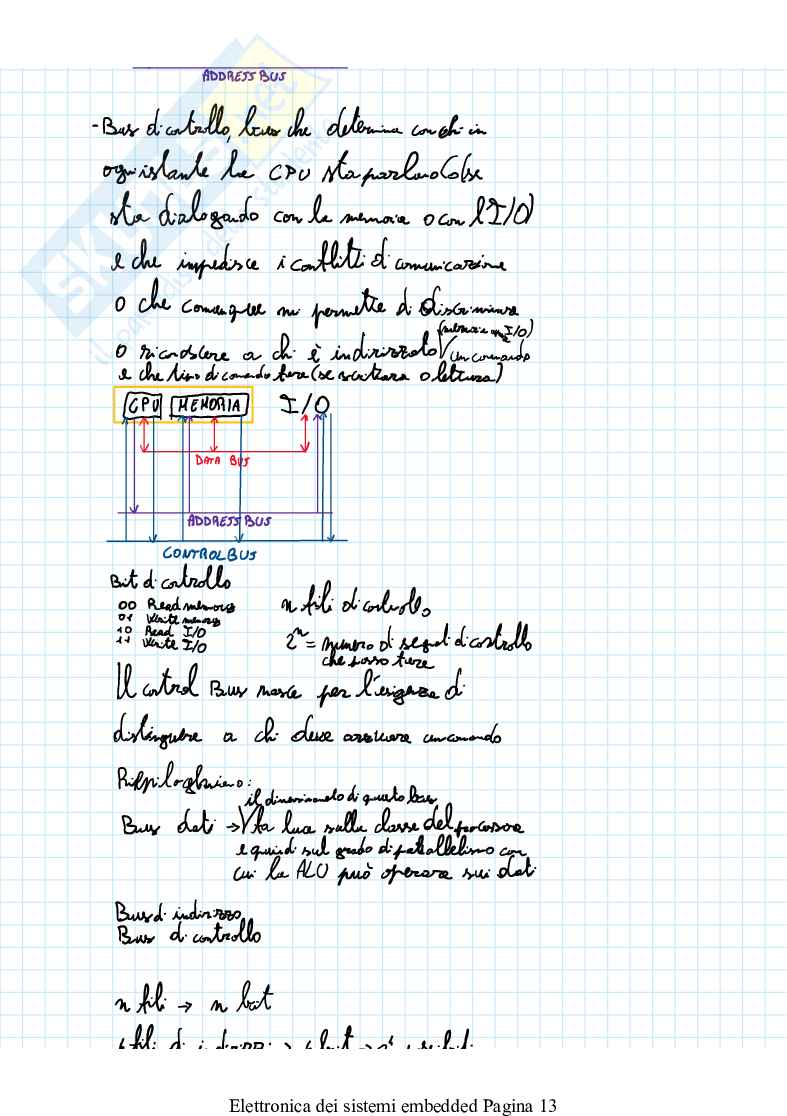 ADDRESS BUS
- Bus di controllo, bus che determina con chi in
ogni istante la CPU sta parlando (se
sta dialogando con la memoria o con l'I/O)
e che impedisce i conflitti di comunicazione
o che comunque mi permette di discriminare
(memoria o I/O)
o riconoscere a chi è indirizzato un comando
e che tipo di comando fare (se scrittura o lettura)
CPU MEMORIA I/O
DATA BUS
ADDRESS BUS
CONTROL BUS
Bit di controllo
00 Read memory
01 Write memory
10 Read I/O
11 Write I/O
n fili di controllo
2^n = numero di segnali di controllo
che posso fare
Il control Bus nasce per l'esigenza di
distinguere a chi deve arrivare un comando
Riepiloghiamo:
il dimensionamento di questo bus
Bus dati → fa luce sulla classe del processore
e quindi sul grado di parallelismo con
cui la ALU può operare sui dati
Bus di indirizzo
Bus di controllo
n fili → n bit
Elettronica dei sistemi embedded Pagina 13